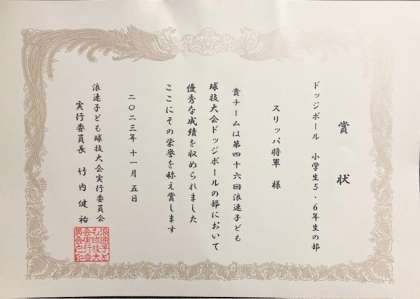 賞状
ドッジボール 小学生5・6年生の部
スリッパ将軍 様
貴チームは第四十六回浪速子ども
球技大会ドッジボールの部において
優秀な成績を収められました
ここにその栄誉を称え賞します
二〇二三年 十一月 五日
浪速子ども球技大会実行委員会
実行委員長 竹内 健祐